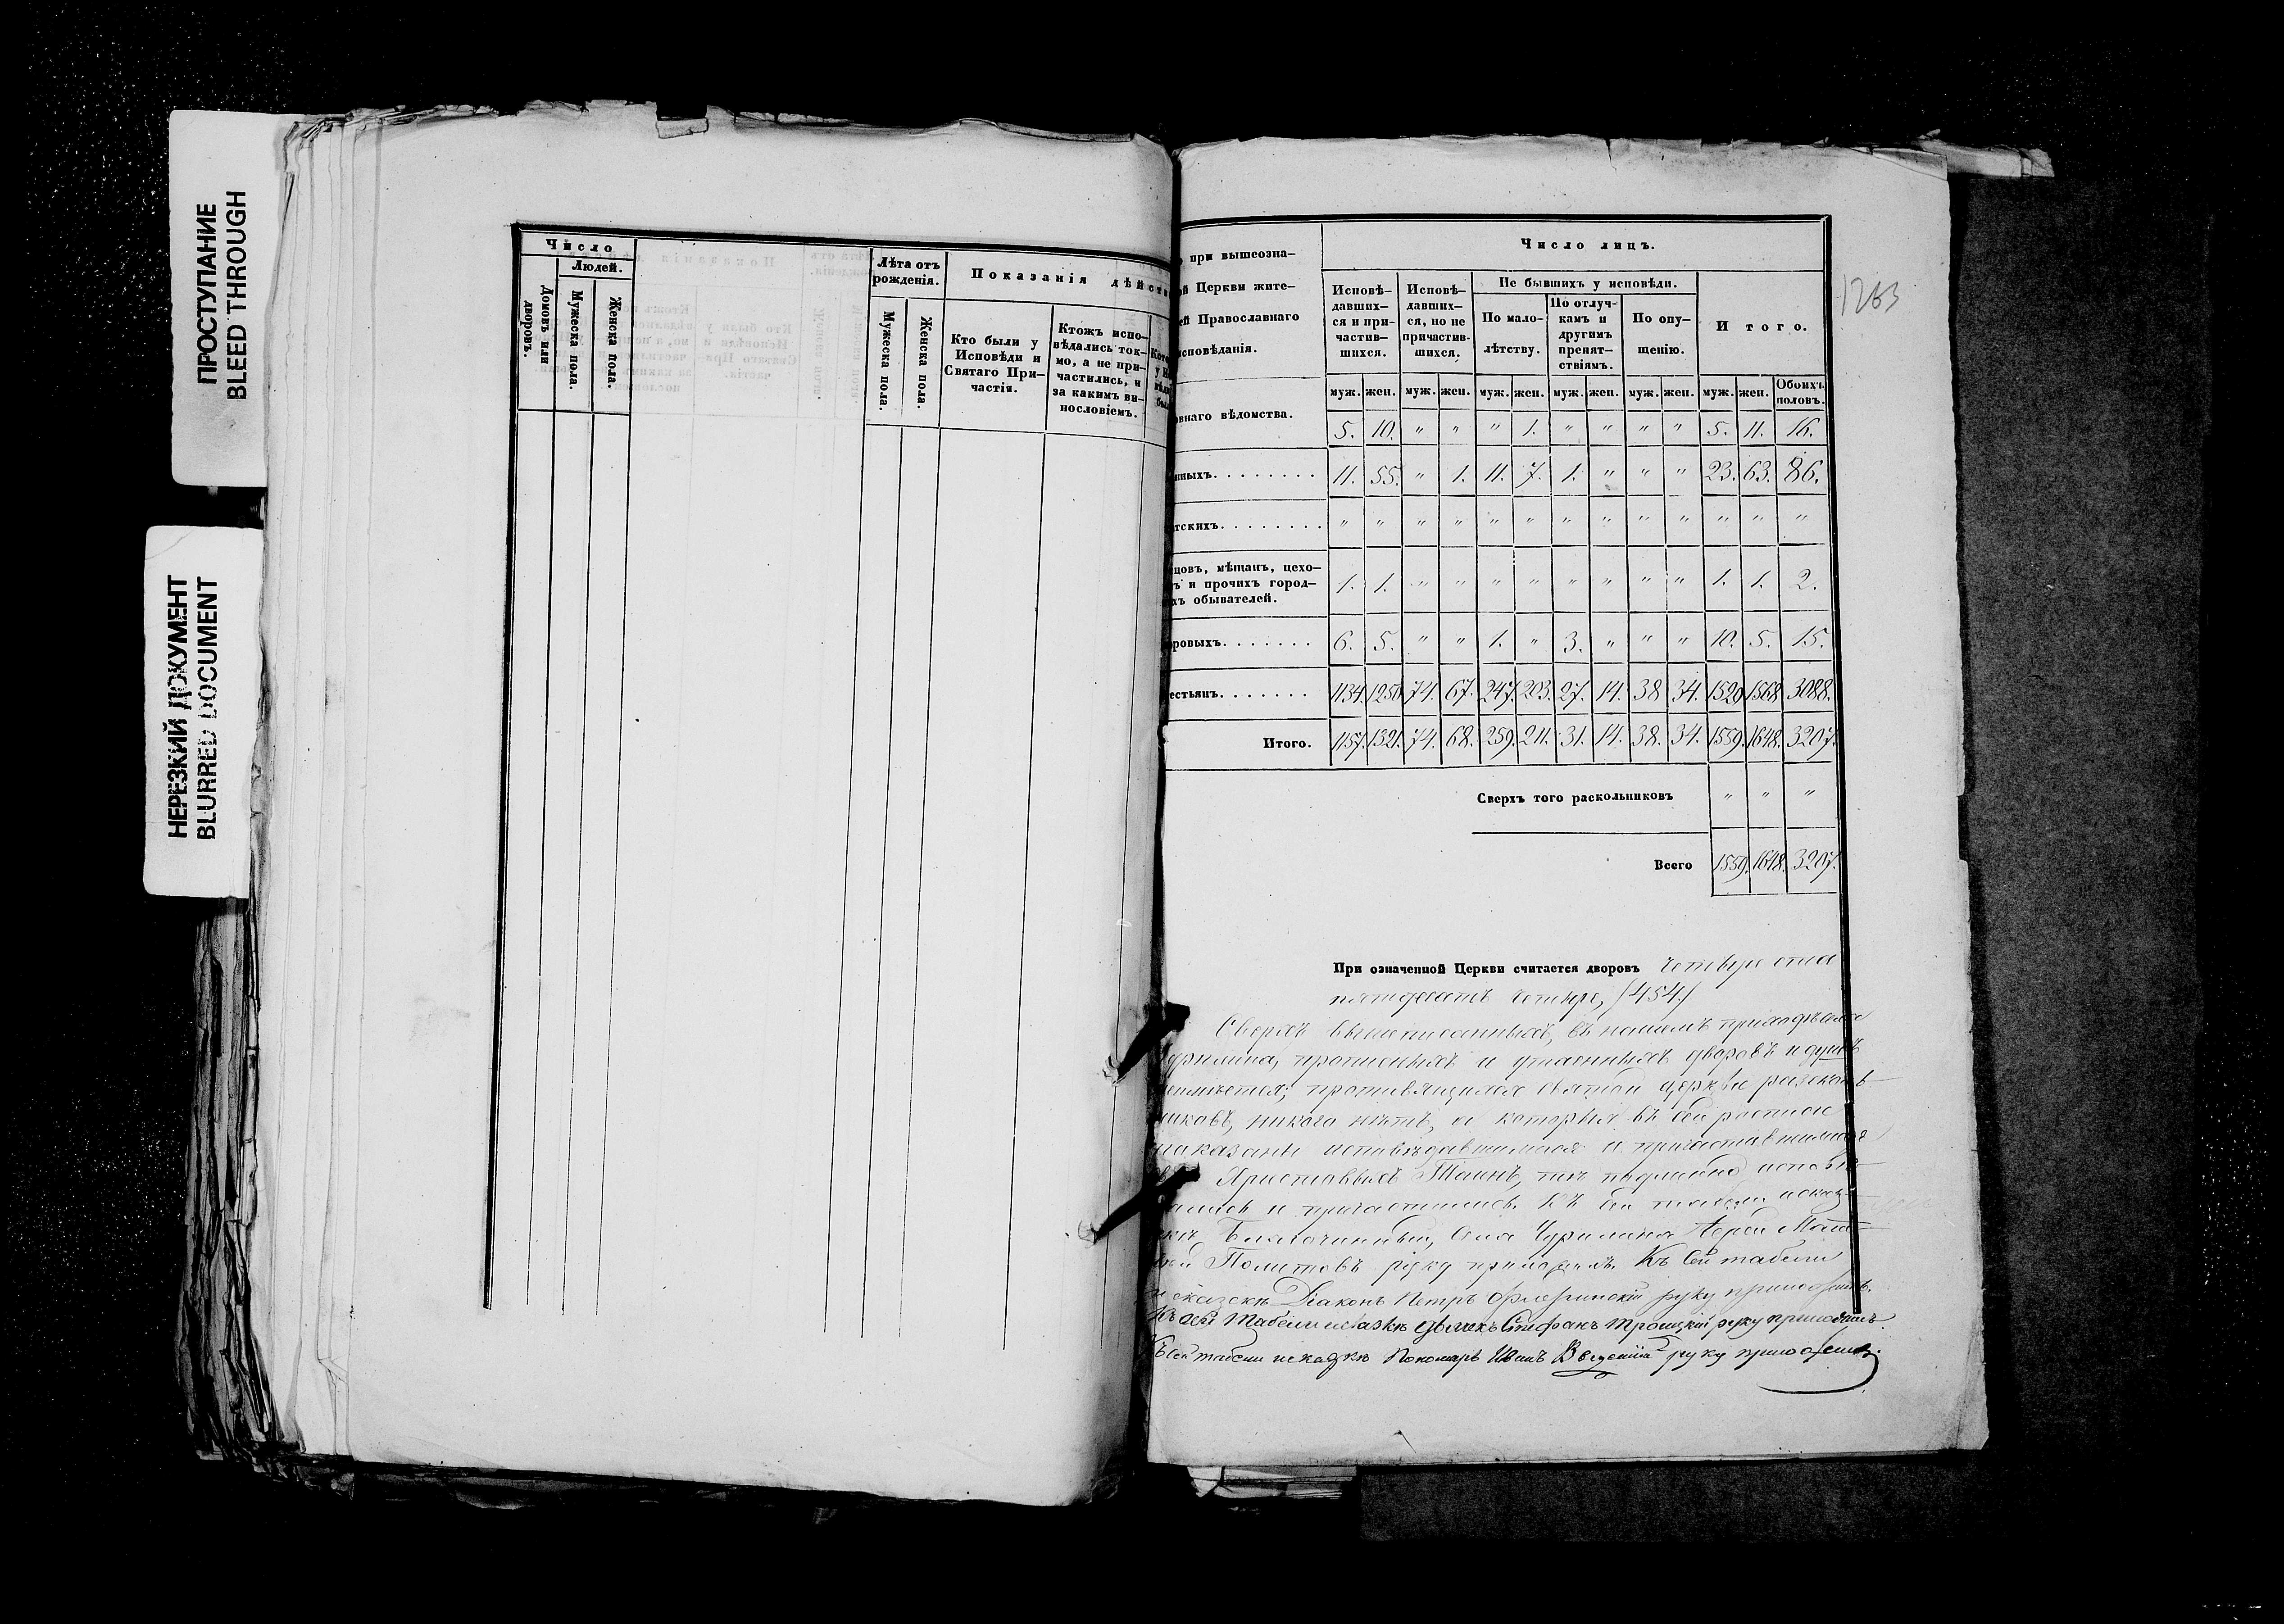 ПРОСТУПАНИЕ
BLEED THROUGH
НЕРЕЗКИЙ ДОКУМЕНТ
BLURRED DOCUMENT
Число
Людей.
Домовъ или дворовъ.
Мужеска пола.
Женска пола.
Лѣта отъ рожденія.
Мужеска пола.
Женска пола.
Показанія дѣйст
Кто были у Исповѣди и Святаго Причастія.
Ктожъ исповѣдались токмо, а не причастились, и за какимъ винословіемъ.
1263
при вышеозна-
й Церкви жите-
ей Православнаго
исповѣданія.
Число лицъ.
Исповѣ-давших-ся и при-частив-шихся.
Исповѣ-давших-ся, но не причастив-шихся.
Не бывшихъ у исповѣди.
По мало-лѣтству.
По отлуч-камъ и другимъ препят-ствіямъ.
По опу-щенію.
Итого.
муж. жен. муж. жен. муж. жен. муж. жен. муж. жен. муж. жен. Обоихъ половъ.
овнаго вѣдомства. 5. 10. " " " 1. " " " " 5. 11. 16.
нныхъ. . . . . . . . 11. 55. " 1. 11. 7. 1. " " " 23. 63. 86.
тскихъ. . . . . . . . " " " " " " " " " " " " "
цовъ, мѣщанъ, цехо-
ъ и прочихъ город-
хъ обывателей. 1. 1. " " " " " " " " 1. 1. 2.
ровыхъ. . . . . . . 6. 5. " " 1. " 3. " " " 10. 5. 15.
естьянъ. . . . . . . 1134. 1250 74. 67. 247. 203. 27. 14. 38 34. 1520 1568 3088.
Итого. 1157. 1321. 74. 68. 259. 211. 31. 14. 38. 34. 1559. 1648. 3207.
Сверхъ того раскольниковъ " " "
Всего 1559. 1648. 3207.
При означенной Церкви считается дворовъ четыреста
пятьдесятъ четыре, /454./
Сверхъ вышеписанныхъ, въ нашемъ приходѣ села
прописныхъ и утаенныхъ дворовъ и душъ
противящихся Святой церкви раскол-
никовъ, никого нѣтъ, а которыя въ сей росписи
показаны исповѣдавшимися и причастившимися
Христовыхъ Таинъ, тѣ подлинно исповѣ-
дались и причастились. Къ сей табели и сказ-
кѣ Благочинный, Села Чурилина Іерей Мат-
вѣй Политовъ руку приложилъ. Къ сей табели
и сказкѣ Діаконъ Петръ руку приложилъ.
Къ сей табели и сказкѣ дьячекъ Стефанъ Троицкій руку приложилъ
Къ сей табели и сказкѣ Пономарь Иванъ Введенскій руку приложилъ.